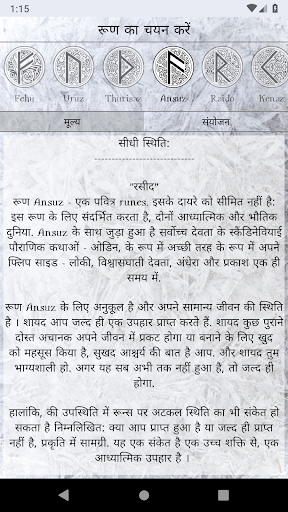 1:15
रूण का चयन करें
Fehu Uruz Thurisaz Ansuz Raido Kenaz
मूल्य संयोजन
सीधी स्थिति:
------------------------------
"रसीद"
रूण Ansuz - एक पवित्र runes, इसके दायरे को सीमित नहीं है:
इस रूण के लिए संदर्भित करता है, दोनों आध्यात्मिक और भौतिक
दुनिया. Ansuz के साथ जुड़ा हुआ है सर्वोच्च देवता के स्कैंडिनेवियाई
पौराणिक कथाओं - ओडिन, के रूप में अच्छी तरह के रूप में अपने
फ्लिप साइड - लोकी, विश्वासघाती देवता, अंधेरा और प्रकाश एक ही
समय में.
रूण Ansuz के लिए अनुकूल है और अपने सामान्य जीवन की स्थिति
है । शायद आप जल्द ही एक उपहार प्राप्त करते हैं. शायद कुछ पुराने
दोस्त अचानक अपने जीवन में प्रकट होगा या बनाने के लिए खुद
को महसूस किया है, सुखद आश्चर्य की बात है आप. और शायद तुम
भाग्यशाली हो. अगर यह सब अभी तक नहीं हुआ है, तो जल्द ही
होगा.
हालांकि, की उपस्थिति में रून्स पर अटकल स्थिति का भी संकेत हो
सकता है निम्नलिखित: क्या आप प्राप्त हुआ है या जल्द ही प्राप्त
नहीं है, प्रकृति में सामग्री. यह एक संकेत है एक उच्च शक्ति से, एक
आध्यात्मिक उपहार है ।